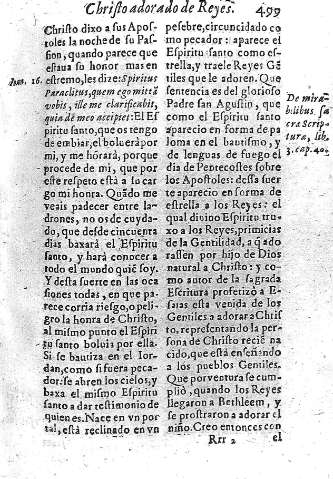 Christo adorado de Reyes.
499
Christo dixo a sus Apos-
toles la noche de su Pas-
sion, quando parece que
estaua su honor mas en
Ioan. 16.
estremo, les dize: Spiritus
Paraclitus, quem ego mittã
vobis, ille me clarificabit,
quia de meo accipiet: El Es
piritu santo, que os tengo
de embiar, el boluerà por
mi, y me hõrarà, porque
procede de mi, que por
este respeto està a su car
go mi honra. Quãdo me
veais padecer entre la-
drones, no os de cuyda-
do, que desde cincuenta
dias baxarà el Espiritu
santo, y harà conocer a
todo el mundo quiẽ soy.
Y desta suerte en las oca
siones todas, en que pa-
rece corria riesgo, o peli-
gro la honra de Christo,
al mismo punto el Espiri
tu santo boluia por ella.
Si se bautiza en el Ior-
dan, como si fuera peca-
dor: se abren los cielos, y
baxa el mismo Espiritu
santo a dar testimonio de
quien es. Nace en vn por
tal, està reclinado en vn
pesebre, circuncidado co
mo pecador: aparece el
Espiritu santo como es-
trella, y traele Reyes Gẽ
tiles que le adoren. Que
sentencia es del glorioso
Padre san Agustin, que
De mira-
bilibus sa
cræ Scrip
turæ, lib.
3. cap. 40.
como el Espiritu santo
aparecio en forma de pa
loma en el bautismo, y
de lenguas de fuego el
dia de Pentecostes sobre
los Apostoles: dessa suer
te aparecio en forma de
estrella a los Reyes: el
qual diuino Espiritu tru-
xo a los Reyes, primicias
de la Gentilidad, a q̃ ado
rassen por hijo de Dios
natural a Christo: y co-
mo autor de la sagrada
Escritura profetizò a E-
saias esta venida de los
Gentiles a adorar a Chris
to, representando la per-
sona de Christo reciẽ na
cido, que està enseñando
a los pueblos Gentiles.
Que por ventura se cum-
pliò, quando los Reyes
llegaron a Bethleem, y
se prostraron a adorar el
niño. Creo entonces con
Rrr 2
el